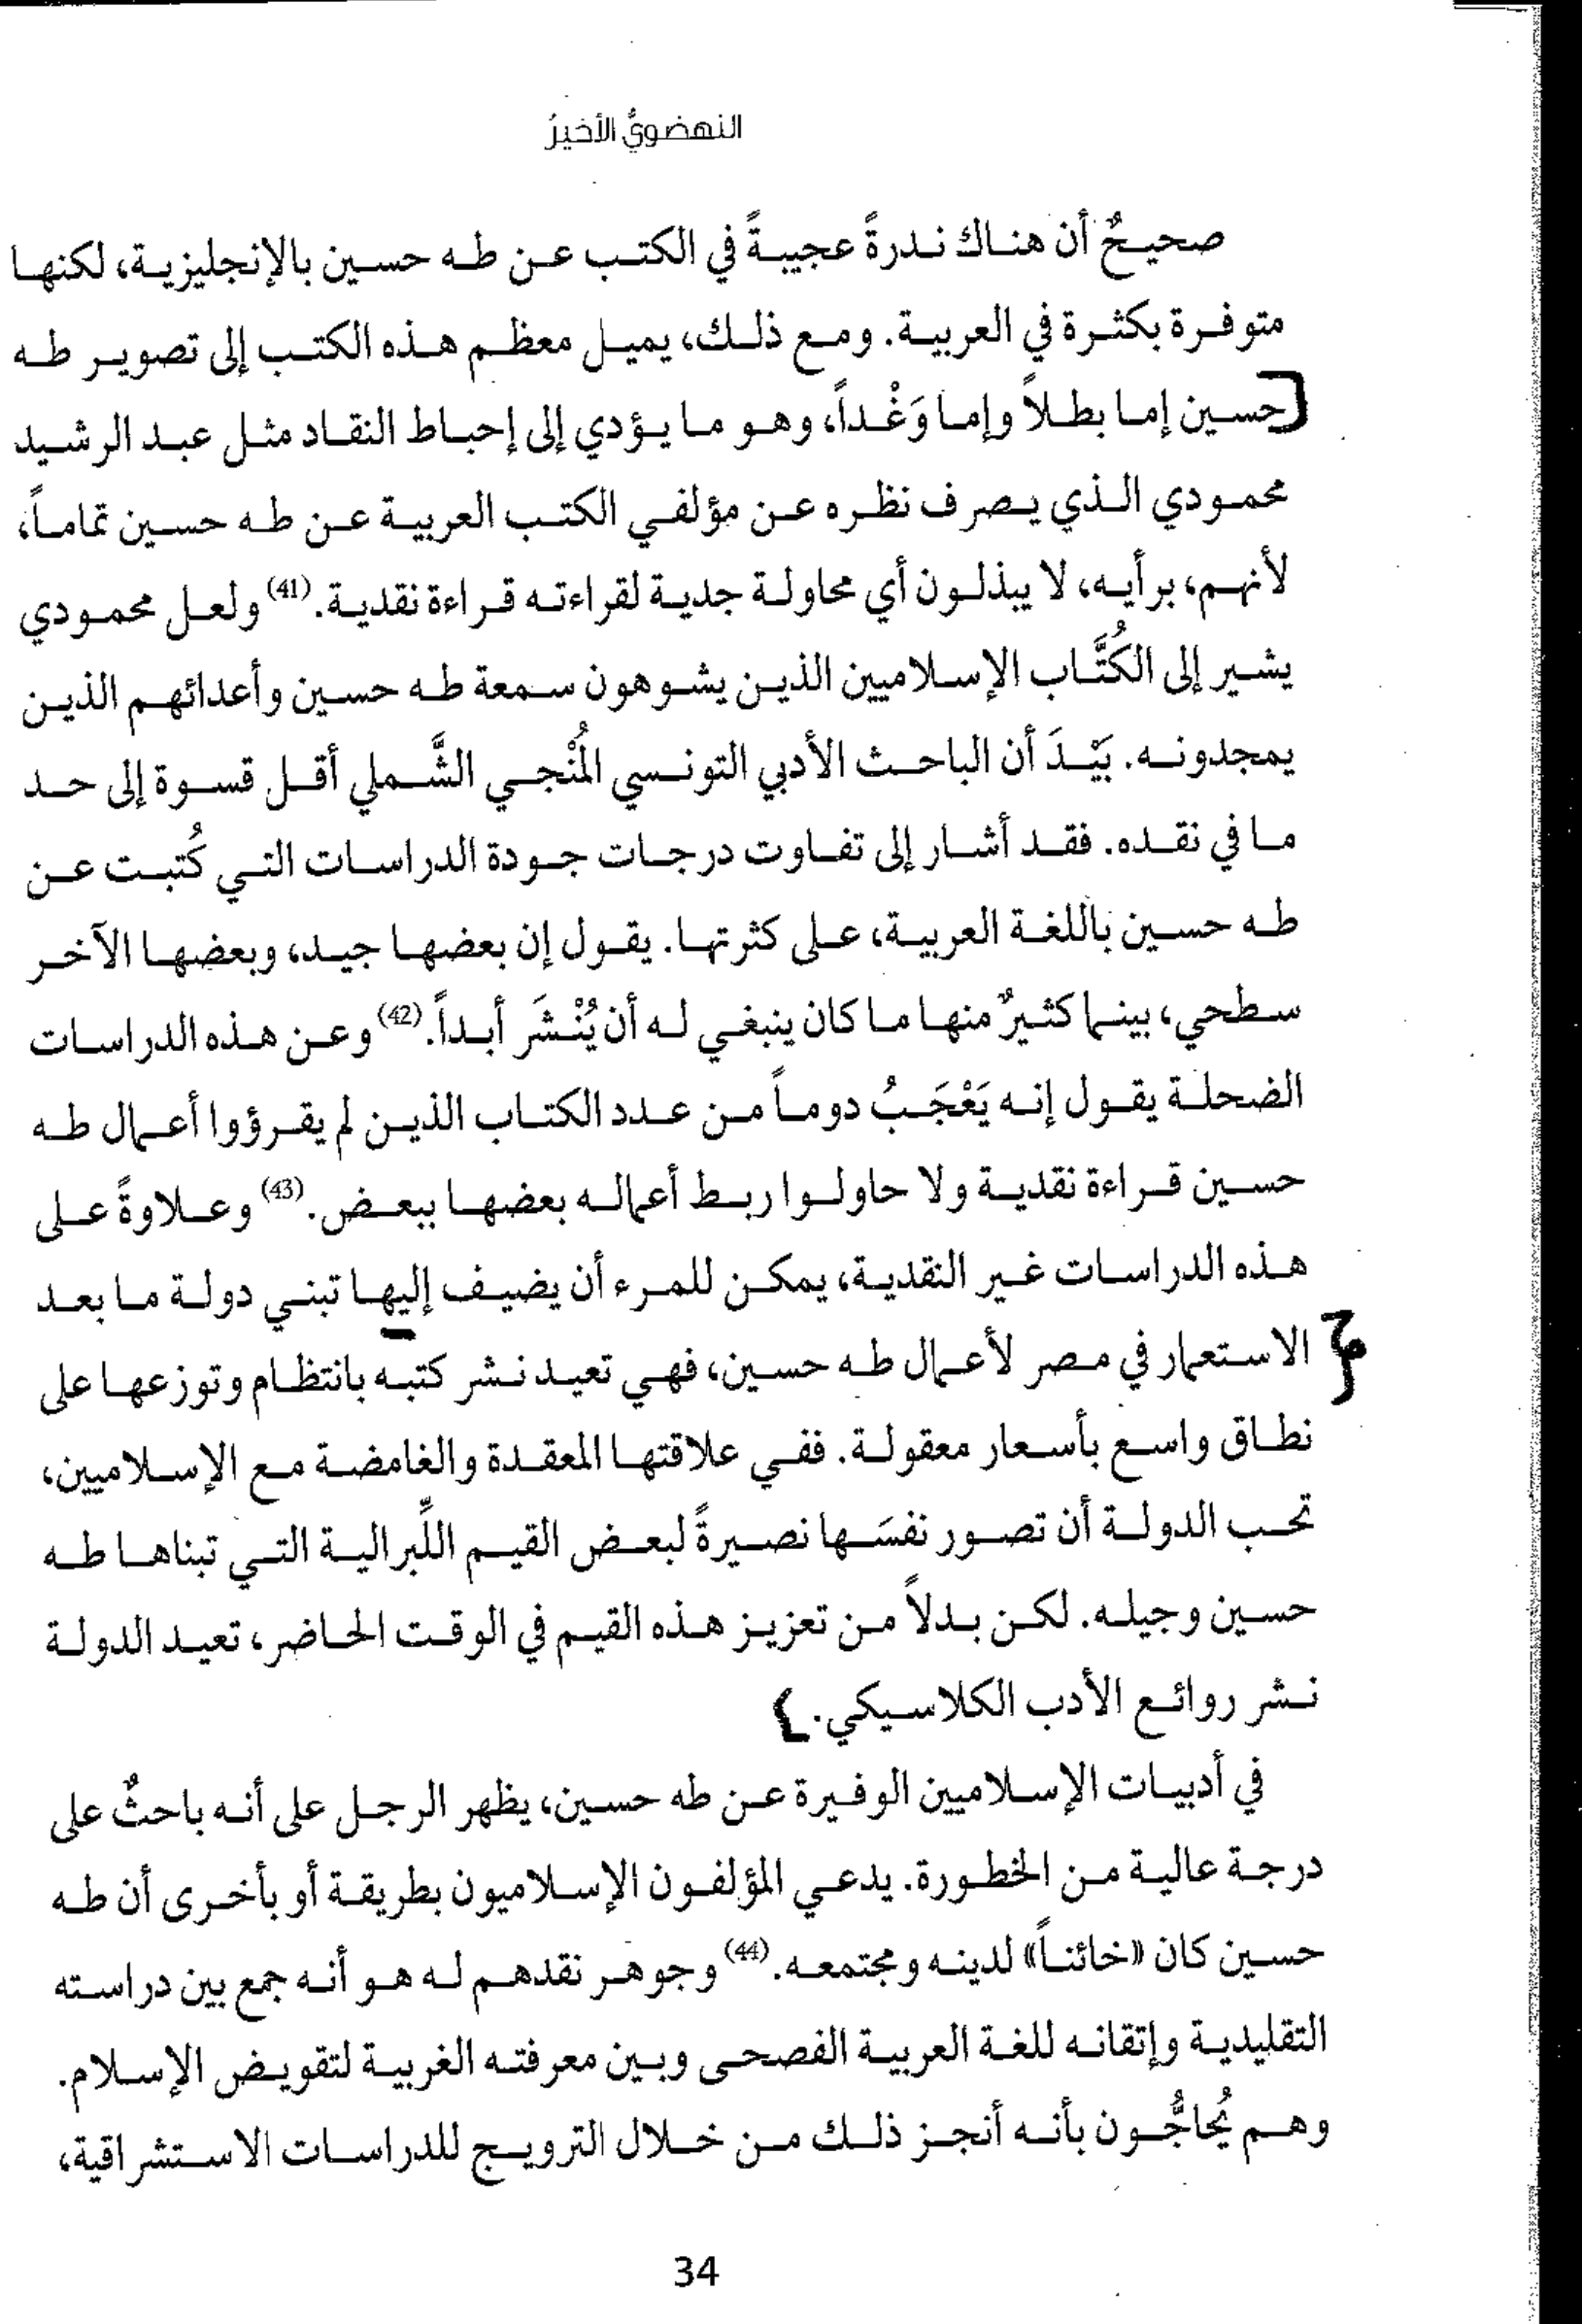 النهضويُّ الأخيرُ
صحيحٌ أن هناك ندرةً عجيبةً في الكتب عن طه حسين بالإنجليزية، لكنها
متوفرة بكثرة في العربية. ومع ذلك، يميل معظم هذه الكتب إلى تصوير طه
حسين إما بطلاً وإما وَغْداً، وهو ما يؤدي إلى إحباط النقاد مثل عبد الرشيد
محمودي الذي يصرف نظره عن مؤلفي الكتب العربية عن طه حسين تماماً،
لأنهم، برأيه، لا يبذلون أي محاولة جدية لقراءته قراءة نقدية.(41) ولعل محمودي
يشير إلى الكُتَّاب الإسلاميين الذين يشوهون سمعة طه حسين وأعدائهم الذين
يمجدونه. بَيْدَ أن الباحث الأدبي التونسي المُنْجي الشَّملي أقل قسوة إلى حد
ما في نقده. فقد أشار إلى تفاوت درجات جودة الدراسات التي كُتبت عن
طه حسين باللغة العربية، على كثرتها. يقول إن بعضها جيد، وبعضها الآخر
سطحي، بينما كثيرٌ منها ما كان ينبغي له أن يُنْشَر أبداً.(42) وعن هذه الدراسات
الضحلة يقول إنه يَعْجَبُ دوماً من عدد الكتاب الذين لم يقرؤوا أعمال طه
حسين قراءة نقدية ولا حاولوا ربط أعماله بعضها ببعض.(43) وعلاوةً على
هذه الدراسات غير النقدية، يمكن للمرء أن يضيف إليها تبني دولة ما بعد
الاستعمار في مصر لأعمال طه حسين، فهي تعيد نشر كتبه بانتظام وتوزعها على
نطاق واسع بأسعار معقولة. ففي علاقتها المعقدة والغامضة مع الإسلاميين،
تحب الدولة أن تصور نفسَها نصيرةً لبعض القيم اللِّبرالية التي تبناها طه
حسين وجيله. لكن بدلاً من تعزيز هذه القيم في الوقت الحاضر، تعيد الدولة
نشر روائع الأدب الكلاسيكي.
في أدبيات الإسلاميين الوفيرة عن طه حسين، يظهر الرجل على أنه باحثٌ على
درجة عالية من الخطورة. يدعي المؤلفون الإسلاميون بطريقة أو بأخرى أن طه
حسين كان «خائناً» لدينه ومجتمعه.(44) وجوهر نقدهم له هو أنه جمع بين دراسته
التقليدية وإتقانه للغة العربية الفصحى وبين معرفته الغربية لتقويض الإسلام.
وهم يُحاجُّون بأنه أنجز ذلك من خلال الترويج للدراسات الاستشراقية،
34